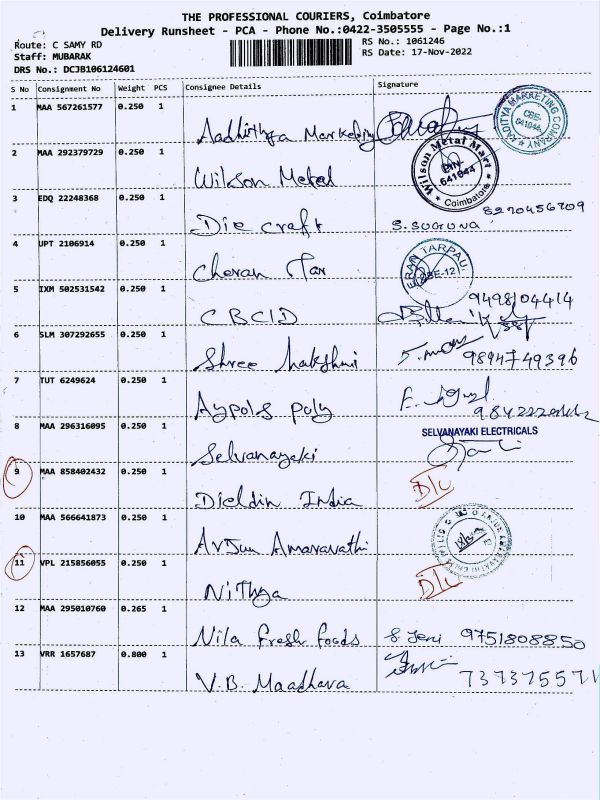 THE PROFESSIONAL COURIERS, Coimbatore
Delivery Runsheet - PCA - Phone No.:0422-3505555 - Page No.:1
Route: C SAMY RD
RS No.: 1061246
Staff: MUBARAK
RS Date: 17-Nov-2022
DRS No.: DCJB106124601
S No Consignment No Weight PCS Consignee Details Signature
1 MAA 567261577 0.250 1
Aadhithya Marketing
ADITYA MARKETING COMPANY CBE- 641044
2 MAA 292379729 0.250 1
Wilson Metal
Wilson Metal Mart PIN- 641044 Coimbatore
3 EDQ 22248368 0.250 1
Die craft
S. SUGUNA 8270456709
4 UPT 2106914 0.250 1
Cheran Tar
ERAN TARPAUL CBE-12
5 IXM 502531542 0.250 1
CBCID
9498104414
6 SLM 307292655 0.250 1
Shree Lakshmi
9894749396
7 TUT 6249624 0.250 1
Aypols poly
8 MAA 296316095 0.250 1
Selvanayaki
SELVANAYAKI ELECTRICALS
9 MAA 858402432 0.250 1
Dieldin India
D/L
10 MAA 566641873 0.250 1
Arjun Amaravathi
11 VPL 215856055 0.250 1
Nithya
D/L
12 MAA 295010760 0.265 1
Nila Fresh Foods
S. Jeni 9751808850
13 VRR 1657687 0.800 1
V.B. Maadhava
737375571